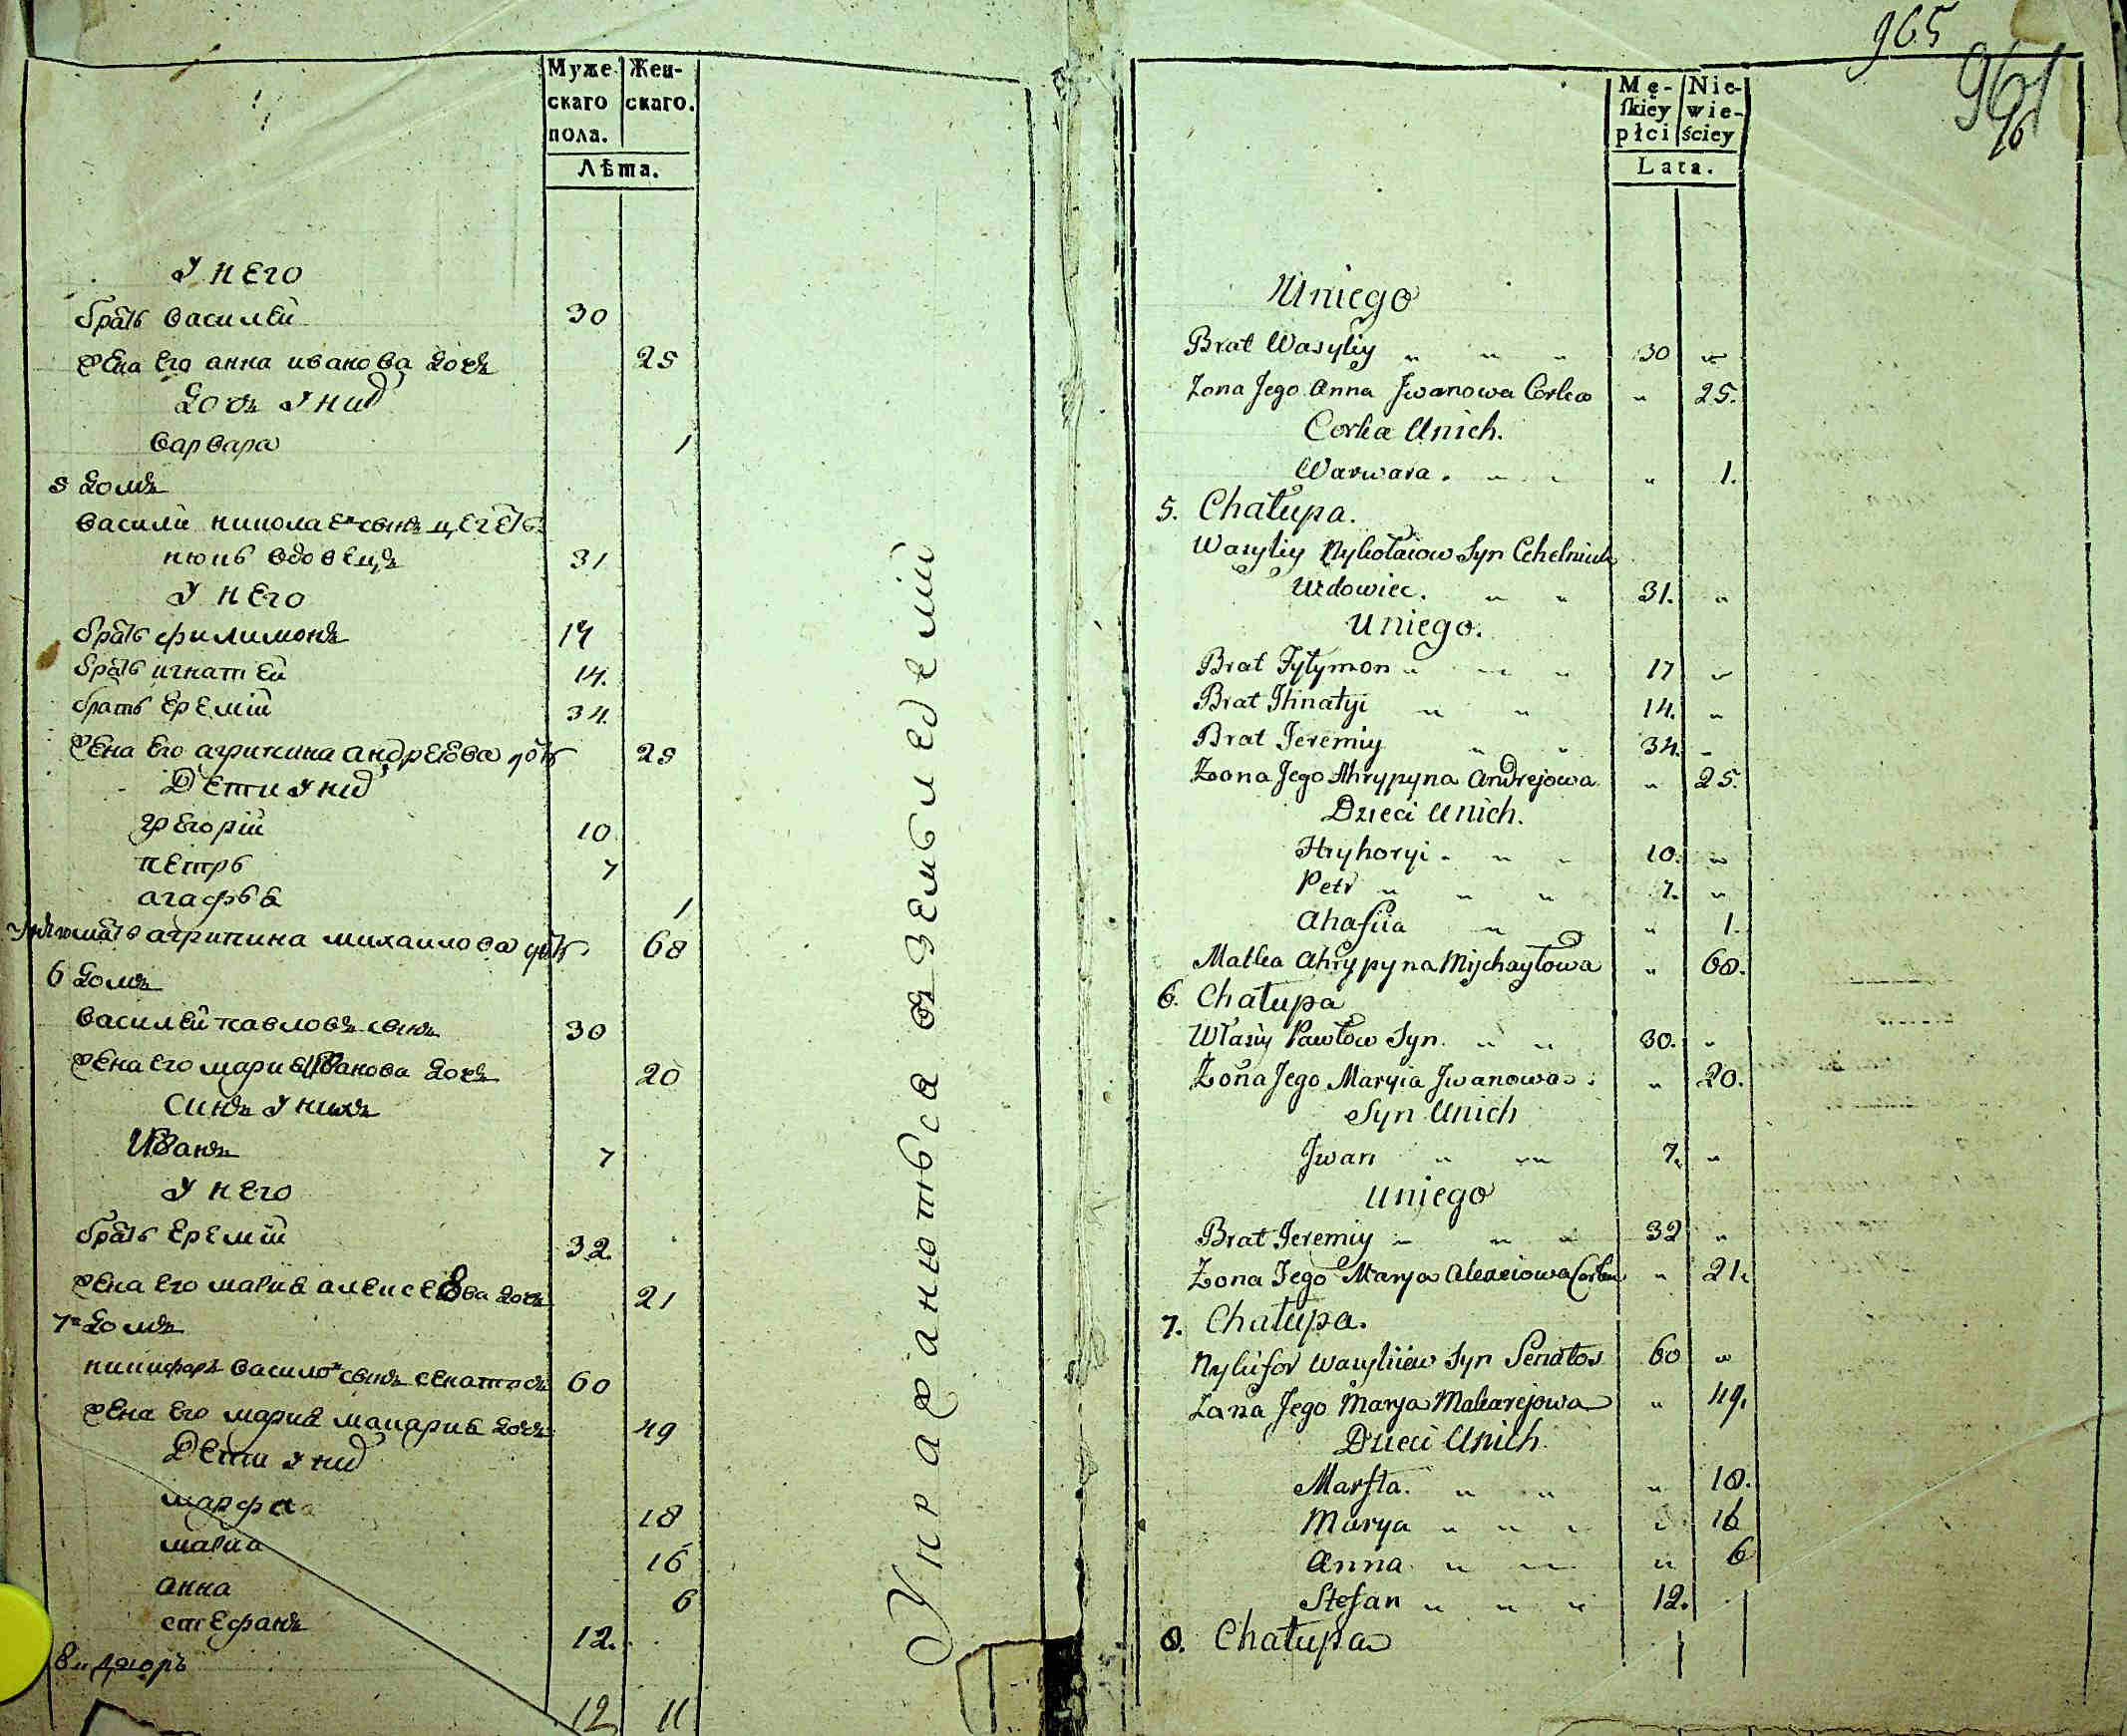 Муже-
скаго
пола.
Жен-
скаго.
Лѣта.
У него
братъ василей 30
жена его анна иванова дочъ 25
дочъ у них
варвара 1
5 домъ
василй николаевъ синъ
вдовецъ 31
У него
братъ филимонъ 17
братъ игнатей 14.
братъ еремій 34.
жена его агрипина андреева дочъ 25
Дети у них
григорій 10
петръ 7
агафья 1
мать агрипина михаилова дочъ 68
6 домъ
василей павловъ синъ 30
жена его мария Иванова дочъ 20
синъ у нихъ
Иванъ 7
У него
братъ еремій 32
жена его мария алексеева дочъ 21
7й домъ
никифоръ василовъ синъ сенаторъ 60
жена его мария макария дочъ 49
Дети у них
марфа 18
мария 16
анна 6
стефанъ 12.
8й дворъ
12 11
Упражняютьса въ земъледелій
965
961
96
Mę-
skiey
płci
Nie-
wie-
ściey
Lata.
Uniego
Brat Wasyliy „ „ „ 30 „
Żona Jego Anna Jwanowa Corka „ 25.
Corka Unich.
Warwara. „ „ „ 1.
5. Chałupa.
Wasyliy Nykołaiow Syn Cehelniuk
Wdowiec. „ „ 31. „
Uniego.
Brat Fyłymon „ „ „ 17 „
Brat Ihnatyi „ „ 14. „
Brat Jeremiy „ „ 34. „
Żona Jego Ahrypyna Andrejowa „ 25.
Dzieci Unich.
Hryhoryi. „ „ 10. „
Petr „ „ „ 7. „
Ahafiia „ „ 1.
Matka Ahrypyna Mychayłowa „ 68.
6. Chałupa
Własiy Pawłow Syn. „ „ 30. „
Żona Jego Maryia Jwanowa. „ 20.
Syn Unich
Jwan „ „ 7. „
Uniego
Brat Jeremiy „ „ „ 32 „
Żona Jego Marya Alexeiowa Corka „ 21.
7. Chałupa.
Nykifor Wasyliiew Syn Senator 60 „
Żona Jego Marya Makarejowa „ 49.
Dzieci Unich.
Marfta. „ „ „ 18.
Marya „ „ „ „ 16
Anna „ „ „ 6
Stefan „ „ „ 12.
8. Chałupa